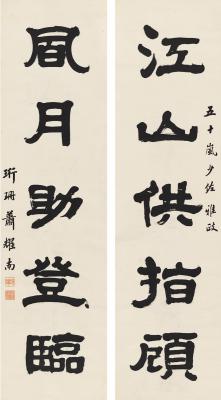 江山供指顧
五十嵐少佐雅政
風月助登臨
珩珊蕭耀南